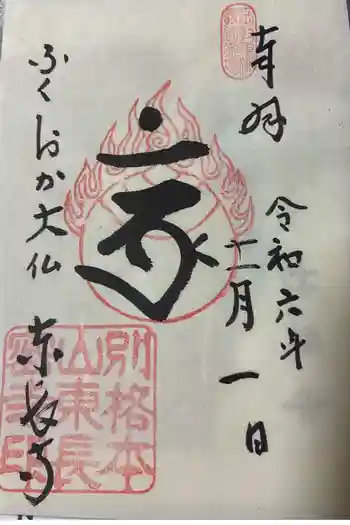 奉拝
令和六年
十二月一日
ふくおか大仏
東長寺
別格本
山東長